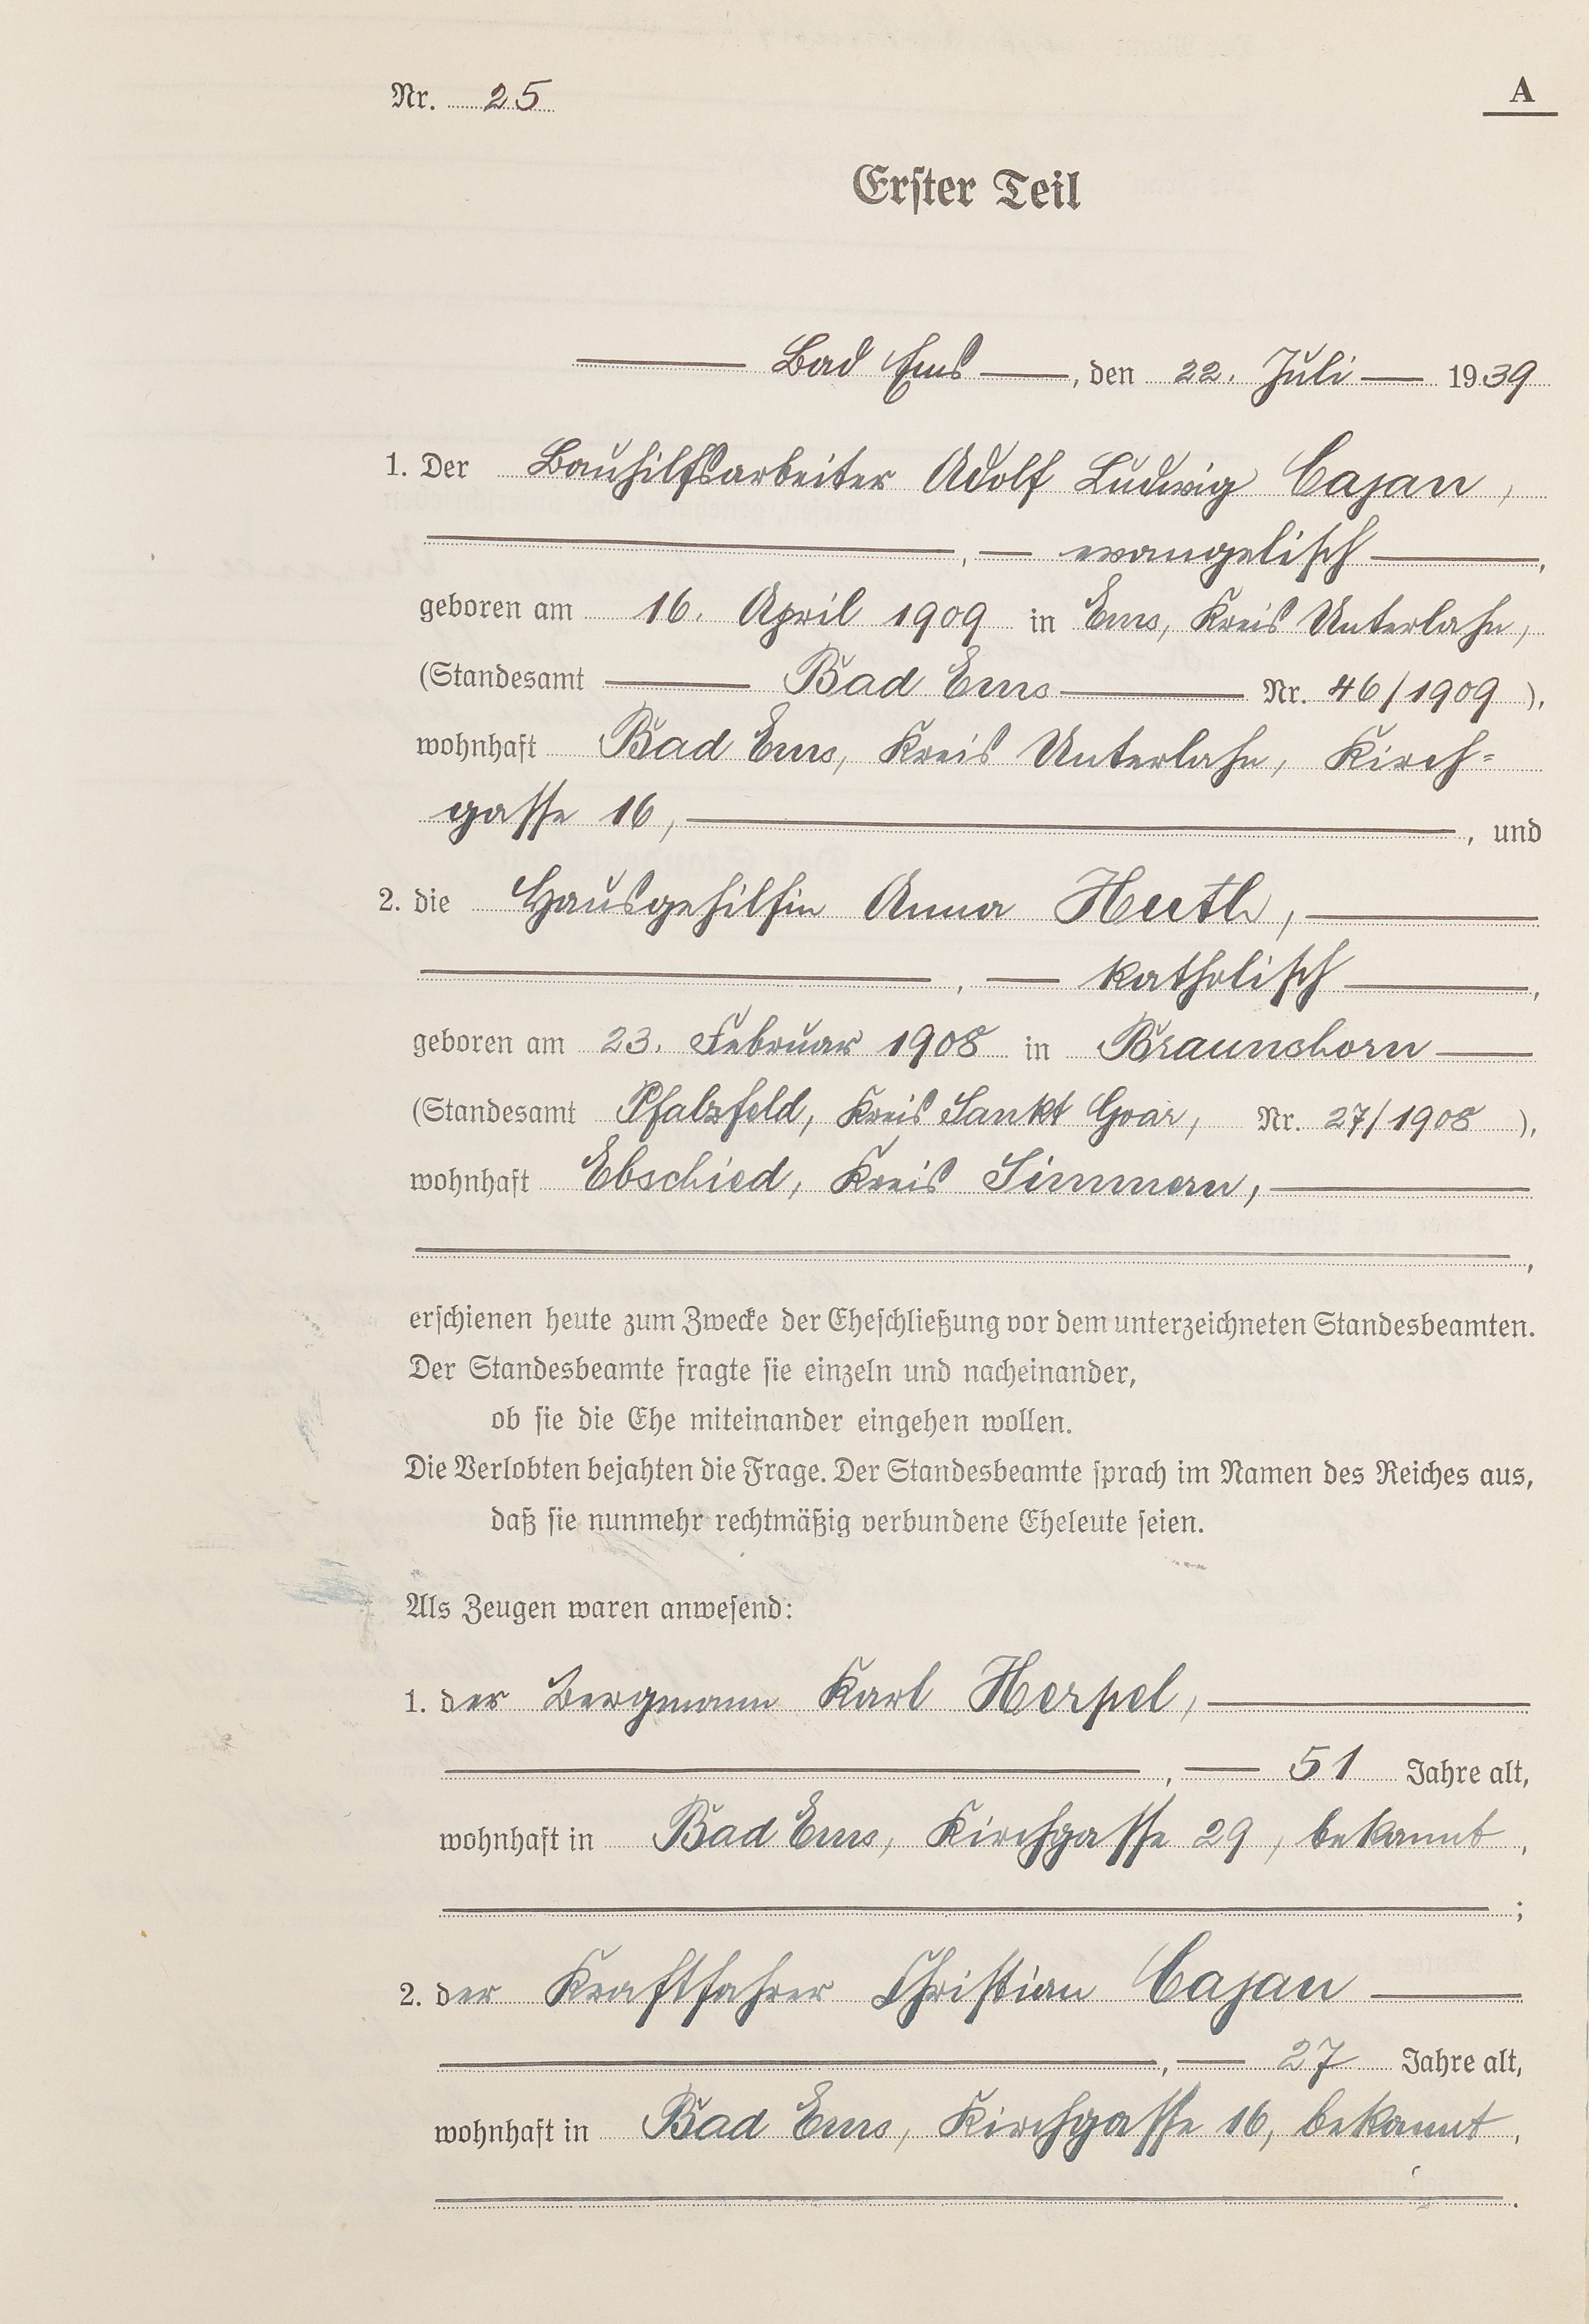 Nr. 25
A
Erster Teil
Bad Ems, den 22. Juli 1939
1. Der Bauhilfsarbeiter Adolf Ludwig Cajan,
, evangelisch,
geboren am 16. April 1909 in Ems, Kreis Unterlahn,
(Standesamt Bad Ems Nr. 46/1909),
wohnhaft Bad Ems, Kreis Unterlahn, Kirch=
gasse 16, , und
2. die Hausgehilfin Anna Huth,
, katholisch,
geboren am 23. Februar 1908 in Braunshorn
(Standesamt Pfalzfeld, Kreis Sankt Goar, Nr. 27/1908),
wohnhaft Ebschied, Kreis Simmern,
,
erschienen heute zum Zwecke der Eheschließung vor dem unterzeichneten Standesbeamten.
Der Standesbeamte fragte sie einzeln und nacheinander,
ob sie die Ehe miteinander eingehen wollen.
Die Verlobten bejahten die Frage. Der Standesbeamte sprach im Namen des Reiches aus,
daß sie nunmehr rechtmäßig verbundene Eheleute seien.
Als Zeugen waren anwesend:
1. der Bergmann Karl Herpel,
, 51 Jahre alt,
wohnhaft in Bad Ems, Kirchgasse 29, bekannt,
;
2. der Kraftfahrer Christian Cajan
, 27 Jahre alt,
wohnhaft in Bad Ems, Kirchgasse 16, bekannt,
.